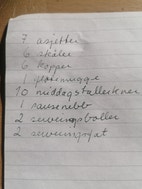 7 asjetter
6 skåler
6 kopper
1 fløtemugge
10 middagstallerkner
1 sausenebb
2 serveringsboller
2 serveringsfat